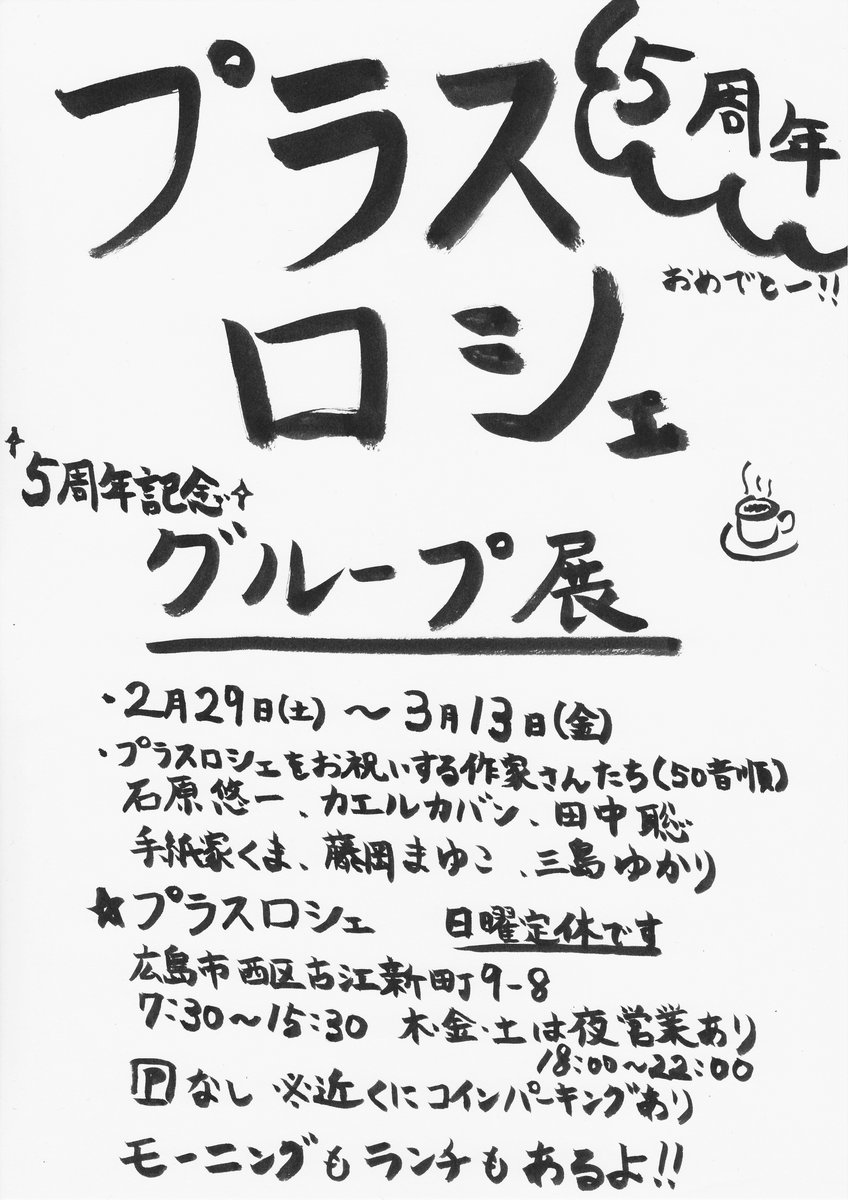 プラス
5周年
おめでとー!!
ロシェ
5周年記念
グループ展
・2月29日(土)～3月13日(金)
・プラスロシェをお祝いする作家さんたち(50音順)
石原悠一、カエルカバン、田中聡
手紙家くま、藤岡まゆこ、三島ゆかり
★プラスロシェ 日曜定休です
広島市西区古江新町9-8
7:30～15:30 木・金・土は夜営業あり
18:00～22:00
Pなし ※近くにコインパーキングあり
モーニングもランチもあるよ!!